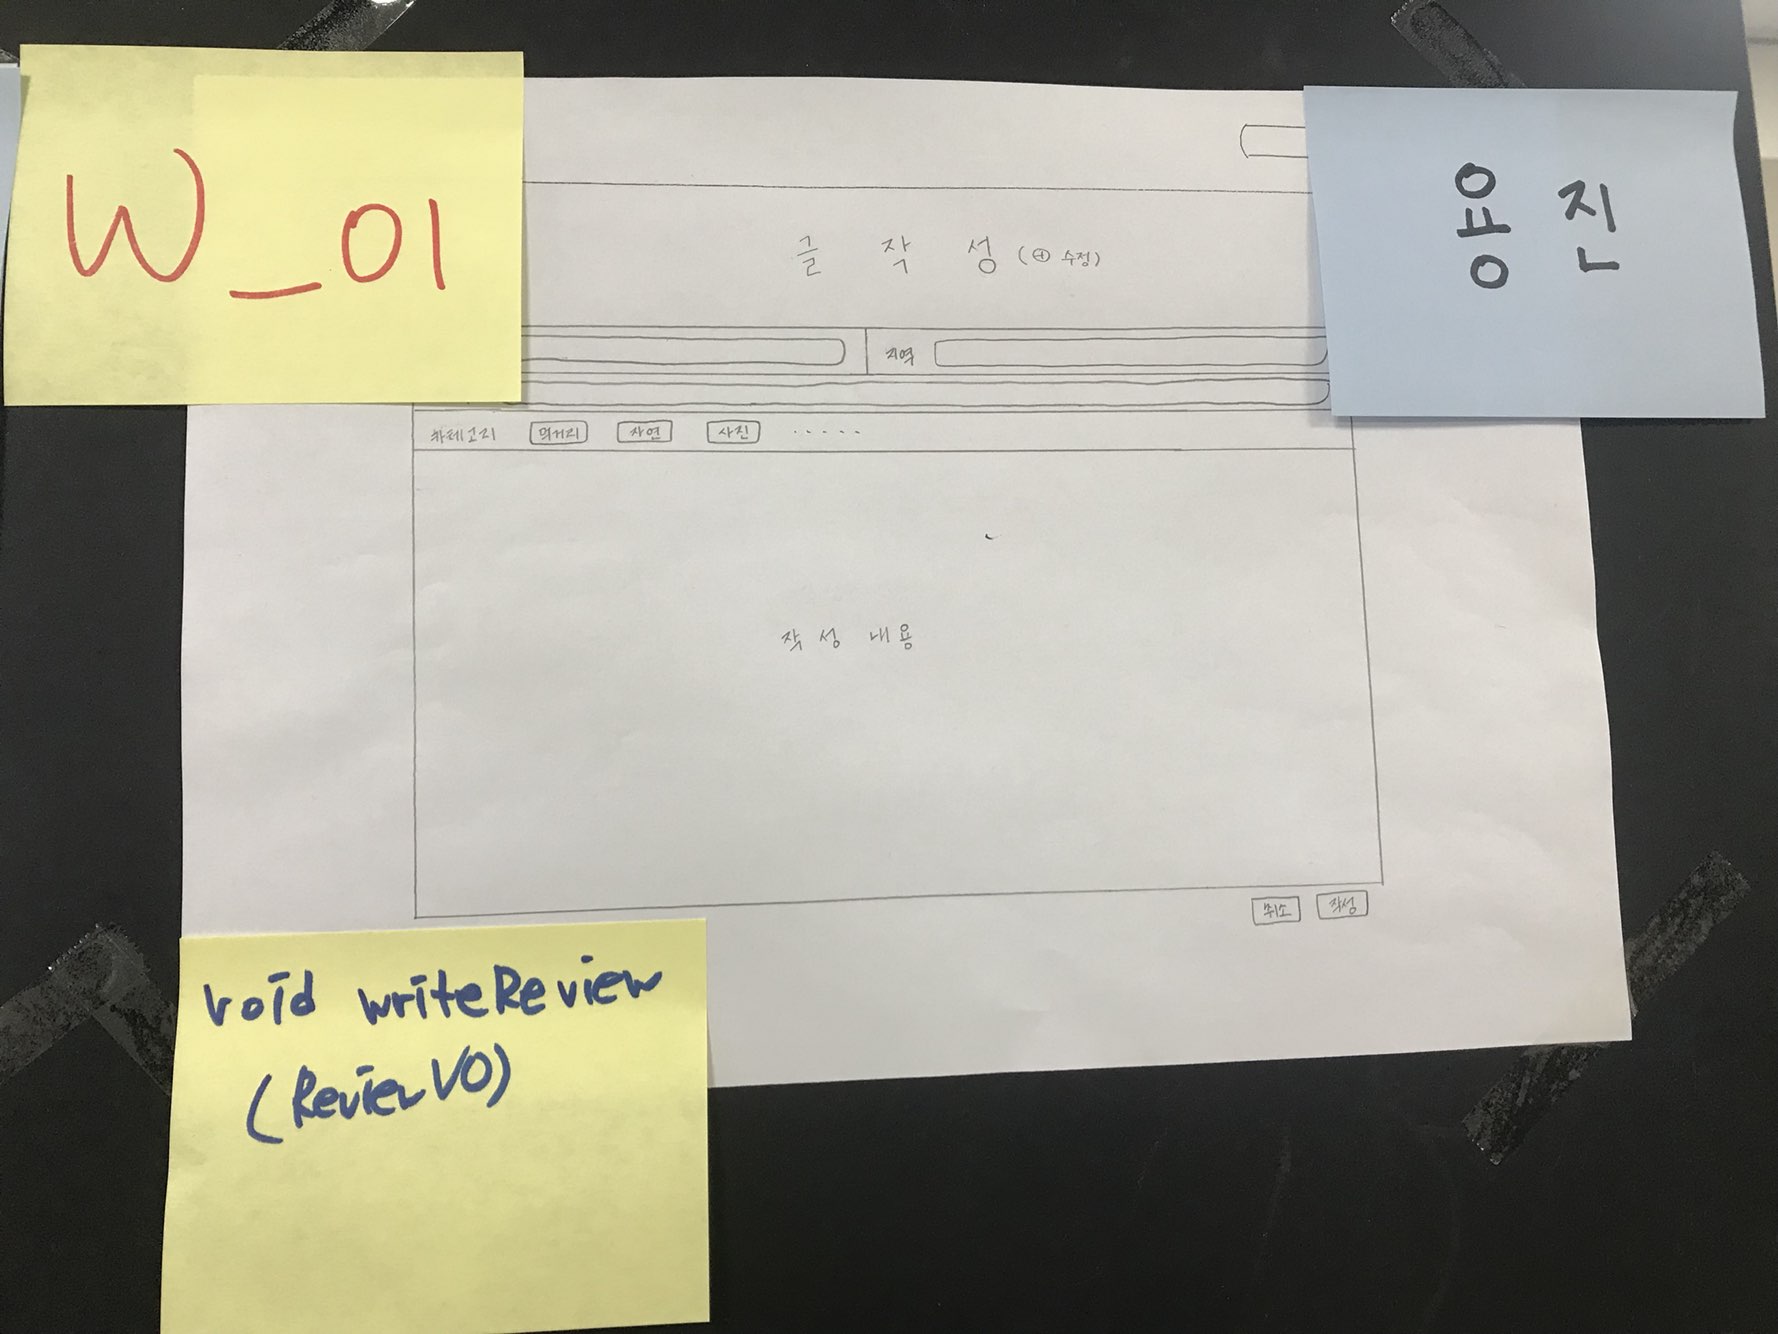 W_01
용진
글 작성 (⊕ 수정)
지역
카테고리 먹거리 자연 사진 .....
작성 내용
취소 작성
void writeReview
(ReviewVO)